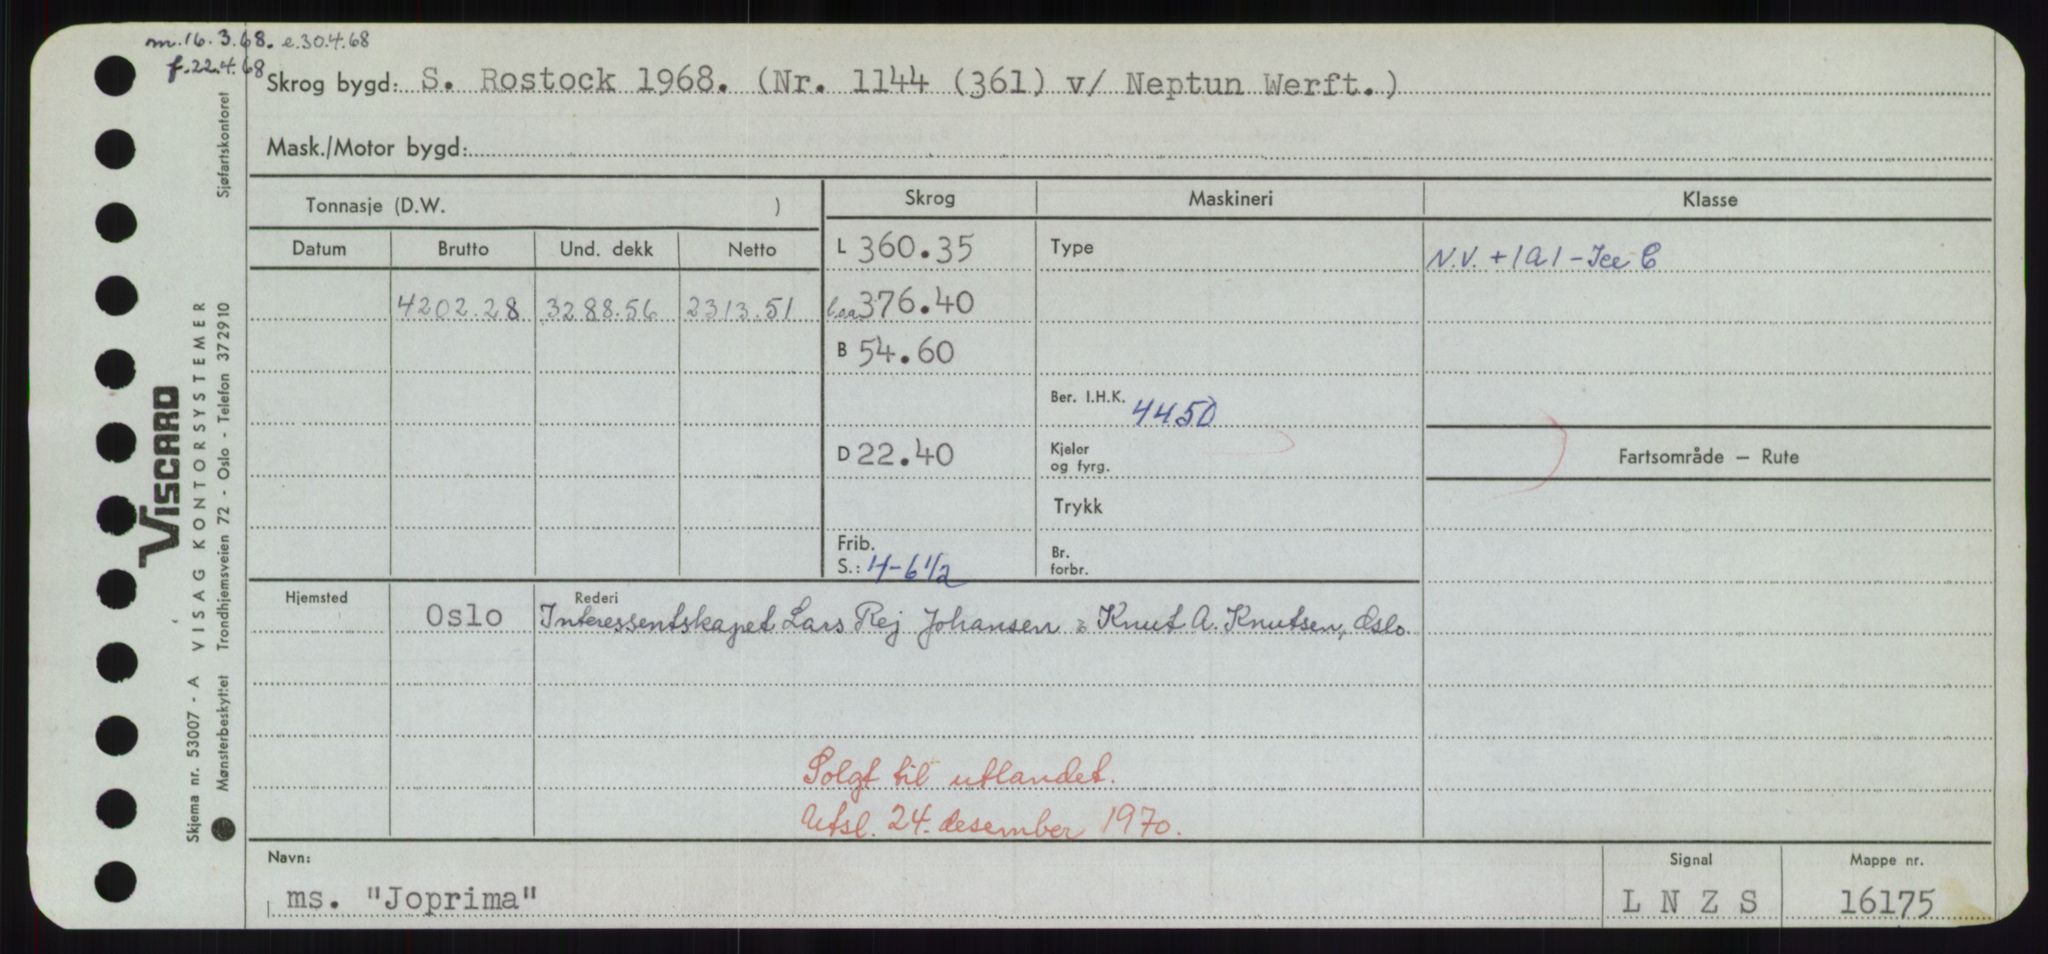 m. 16.3.68. e.30.4.68
f. 22.4.68
Skrog bygd: S. Rostock 1968. (Nr. 1144 (361) v/ Neptun Werft.)
Mask./Motor bygd:
Tonnasje (D.W. )
Skrog Maskineri Klasse
Datum Brutto Und. dekk Netto
L 360.35 Type N.V. + 1A1 - Ice C
4202.28 3288.56 2313.51 l.o.a. 376.40
B 54.60
Ber. I.H.K. 4450
D 22.40 Kjeler og fyrg. Fartsområde – Rute
Trykk
Frib.
S.: 4-6 1/2 Br. forbr.
Hjemsted Rederi
Oslo Interessentskapet Lars Rej Johansen & Knut A. Knutsen, Oslo.
Solgt til utlandet.
Utsl. 24. desember 1970.
Navn: Signal Mappe nr.
ms. "Joprima" L N Z S 16175
VISCARD
Skjema nr. 53007 - A VISAG KONTORSYSTEMER
Mønsterbeskyttet Trondhjemsveien 72 - Oslo - Telefon 372910 Sjøfartskontoret